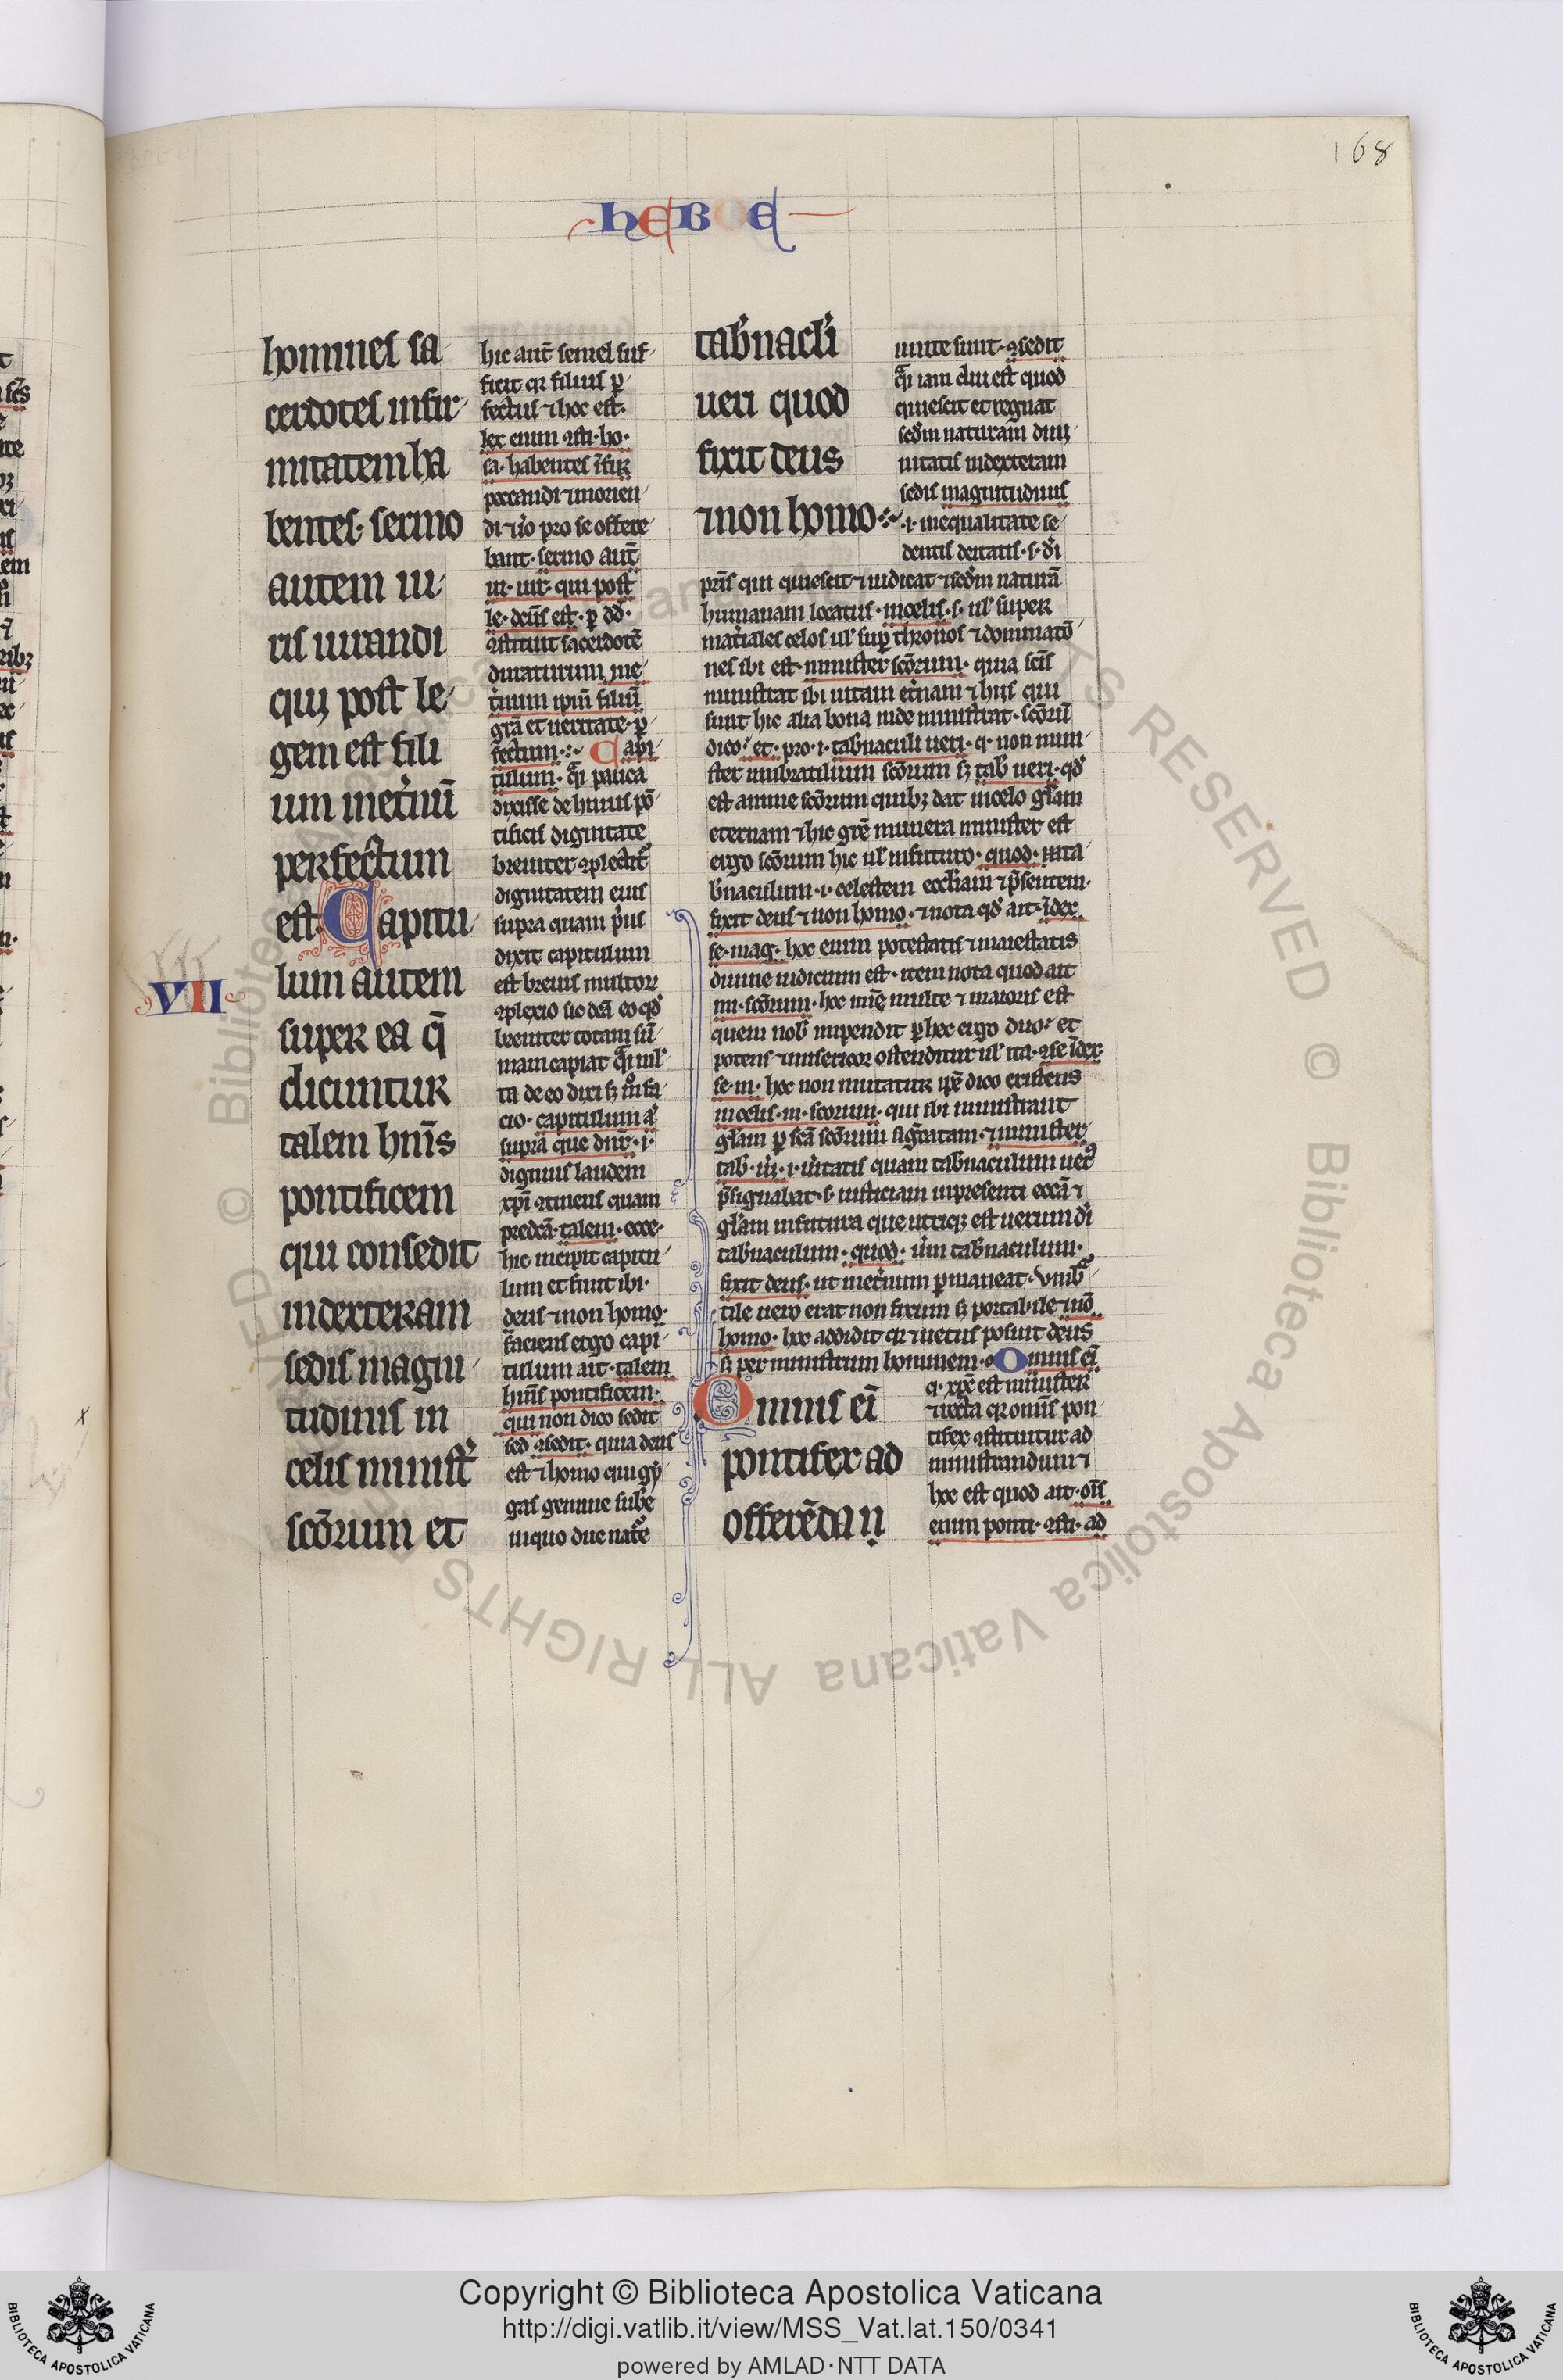 168
HEBRE
homines sa
cerdotes infir
mitatem ha
bentes· sermo
autem iu
ris iurandi
qui post le
gem est fili
um inet̾nū
perfectum
est· Capitu
VII
lum autem
super ea q̄
dicuntur
talem hn̄s
pontificem
qui consedit
indexteram
sedis magni
tudinis in
celis minist̾
scōrum et
hic aut̄ semel suf
ficit qr filius ꝑ
fectus ⁊ hoc est·
lex enim ꝯsti· ho·
sa· habentes īfir
peccandi ⁊ morien
di ⁊ io pro se offere
bant· sermo aut̄
iu· iur̄· qui post
le· deus est· ꝑ dd·
ꝯstituit sacerdotē
duraturum ine
t̾num ipm̄ filiū
grā et ueritate· ꝑ
fectum· Capi
tulum· q̄i pauca
dixisse de huius pō
tificis dignitate
breuiter ꝯplectit̾
dignitatem eius
supra quam p̾us
dixit capitulum
est breuis multoꝝ
ꝯplexio sic dcā eo qd̾
breuiter totam sū
mam capiat q̄i ml̾
ta de eo dixi sꝫ m̊ fa
cio· capitulum a̾
supra que dnr̄· i·
dignius laudem
xp̄i ꝯtinens quam
predcā· talem· ecce·
hic incipit capitu
lum et finit ibi·
deus ⁊ non homo·
faciens ergo capi
tulum ait· talem
hn̄s pontificem·
qui non dico sedit
sed ꝯsedit· quia deus
est ⁊ homo
gas gemine sub̄e
in quo due nat̾e
tab̾nacl̾i
ueri quod
fixit deus
⁊ non homo
unite sunt· ꝯsedit
q̄i iam diu est quod
quiescit et regnat
scd̾m naturam diui
nitatis indexteram
sedis magnitudinis
·i· inequalitate se
dentis deitatis· s· d̾i
pr̄is qui quiescit ⁊ iudicat ⁊ scd̾m naturā
humanam locatus· incelis· s· ul̾ super
mat̾iales celos ul̾ sup̄ thronos ⁊ dominatō
nes ibi est· minister scōrum· quia scīs
ministrat ibi uitam et̾nam ⁊ hiis qui
sunt hic alia bona inde ministrat· scōrū
dico· et· pro· i· tab̾naculi ueri· q· non mini
ster umbratilium scōrum sꝫ tab̾ ueri· qd̾
est anime scōrum quibꝫ dat incelo gl̾am
eternam ⁊ hic grē munera minister est
ergo scōrum hic ul̾ infuturo· quod· ta
b̾naculum· i· celestem eccl̾iam ⁊ p̄sentem·
fixit deus ⁊ non homo· ⁊ nota qd̾ ait· īdex
se· mag· hoc enim potestatis ⁊ maiestatis
diuine indicium est· item nota quod ait
mi· scōrum· hoc mīe multe ⁊ maioris est
quem nob̾ inpendit ꝑ hec ergo duo· et
potens ⁊ misericor ostenditur ul̾ ita· ꝯse īdex
se· m· hoc non mutatur ip̄e dico existens
incelis· m· scōrum· qui ibi ministrant
gl̾am ꝑ scā scōrum sig̾tatam· ⁊ minister
tab̾· u̾i· i· u̾itatis quam tab̾naculum uet̾
p̄signabat· s· iusticiam inpresenti eccā ⁊
gl̾am infutura que utriqꝫ est uerum d̾i
tab̾naculum· quod· u̾m tab̾naculum·
fixit deus· ut inet̾num ꝑmaneat· Umb̾
tile uero erat non fixum sꝫ portabile ⁊ nō
homo· hoc addidit qr ⁊ uetus posuit deus
sꝫ per ministrum hominem· Omnis ei̅
Omnis ei̅
pontifex ad
offerēda n̄
q· xp̄c est minister
⁊ uecta qr omīs pon
tifex ꝯstituitur ad
ministrandum ⁊
hoc est quod ait· oīs
enim ponti· ꝯsti· ad
Copyright © Biblioteca Apostolica Vaticana
http://digi.vatlib.it/view/MSS_Vat.lat.150/0341
powered by AMLAD·NTT DATA